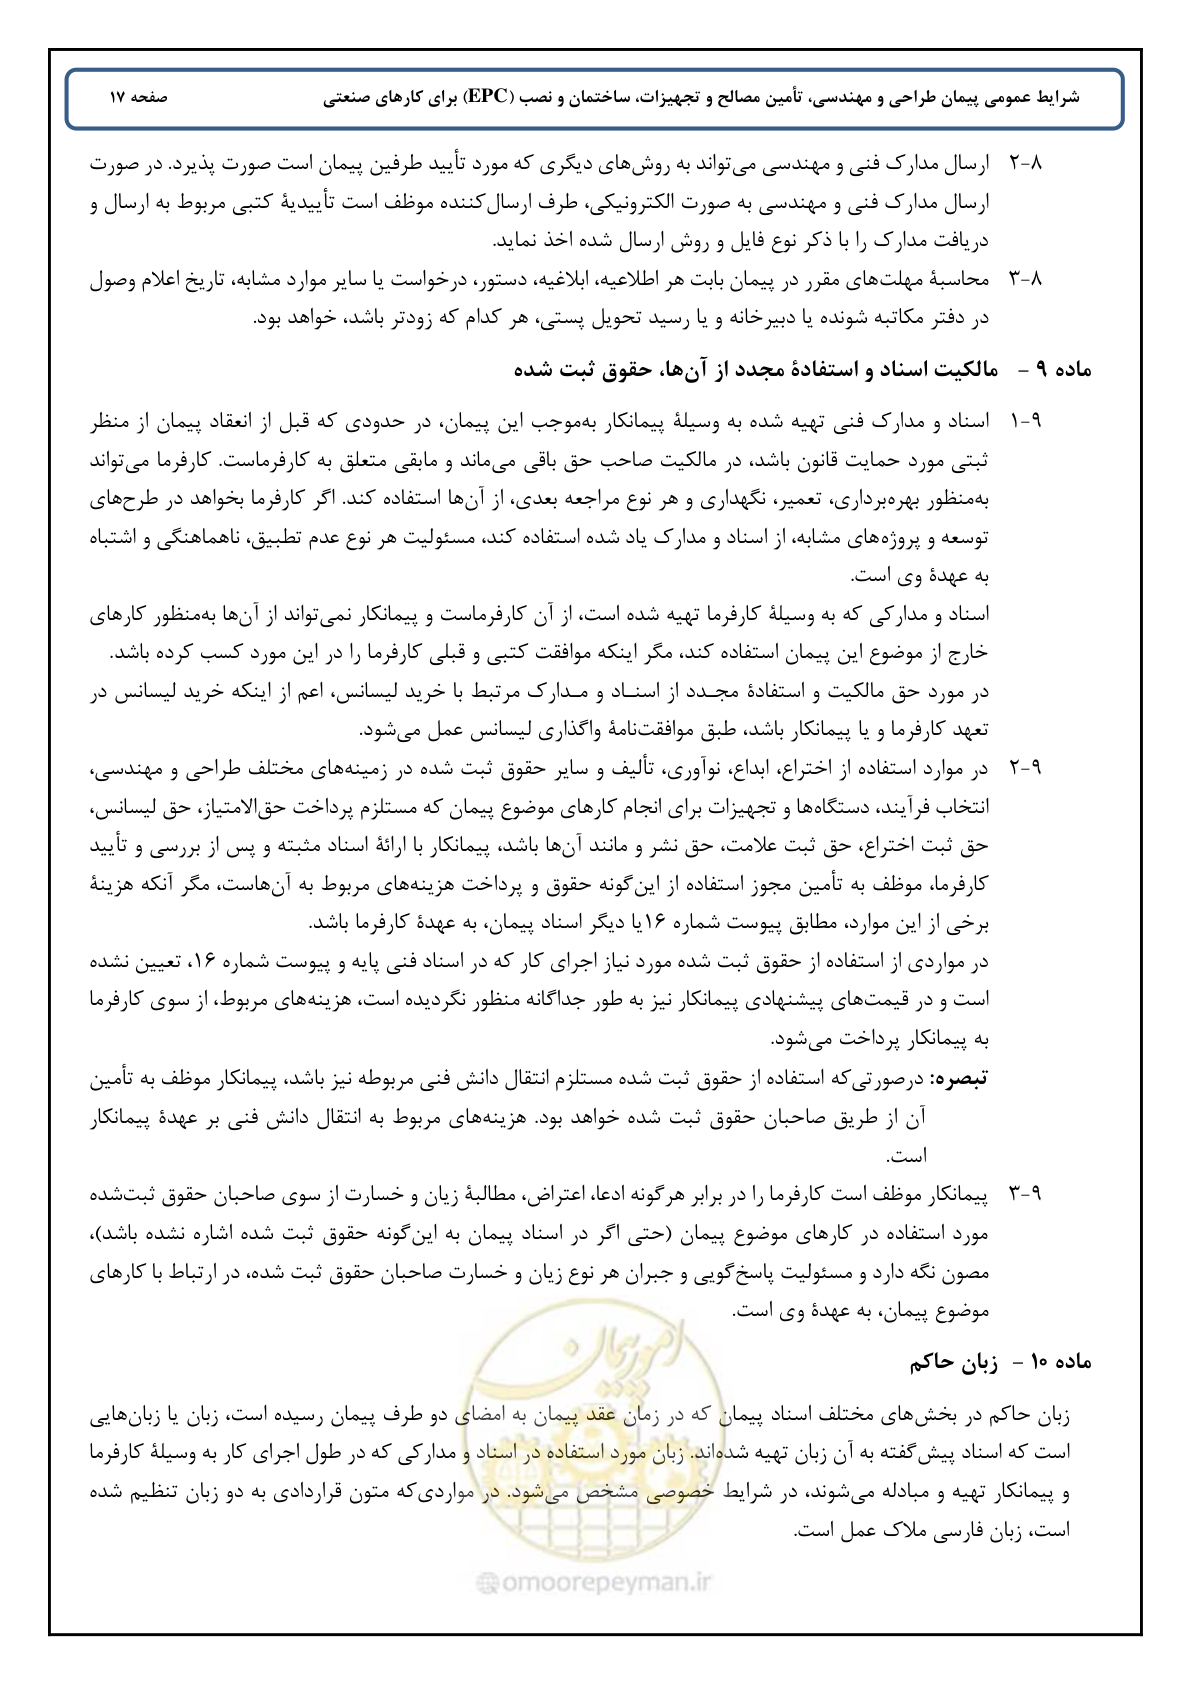 شرایط عمومی پیمان طراحی و مهندسی، تأمین مصالح و تجهیزات، ساختمان و نصب (EPC) برای کارهای صنعتی صفحه ۱۷
۲-۸ ارسال مدارک فنی و مهندسی می‌تواند به روش‌های دیگری که مورد تأیید طرفین پیمان است صورت پذیرد. در صورت
ارسال مدارک فنی و مهندسی به صورت الکترونیکی، طرف ارسال‌کننده موظف است تأییدیهٔ کتبی مربوط به ارسال و
دریافت مدارک را با ذکر نوع فایل و روش ارسال شده اخذ نماید.
۳-۸ محاسبهٔ مهلت‌های مقرر در پیمان بابت هر اطلاعیه، ابلاغیه، دستور، درخواست یا سایر موارد مشابه، تاریخ اعلام وصول
در دفتر مکاتبه شونده یا دبیرخانه و یا رسید تحویل پستی، هر کدام که زودتر باشد، خواهد بود.
ماده ۹ – مالکیت اسناد و استفادهٔ مجدد از آن‌ها، حقوق ثبت شده
۱-۹ اسناد و مدارک فنی تهیه شده به وسیلهٔ پیمانکار به‌موجب این پیمان، در حدودی که قبل از انعقاد پیمان از منظر
ثبتی مورد حمایت قانون باشد، در مالکیت صاحب حق باقی می‌ماند و مابقی متعلق به کارفرماست. کارفرما می‌تواند
به‌منظور بهره‌برداری، تعمیر، نگهداری و هر نوع مراجعه بعدی، از آن‌ها استفاده کند. اگر کارفرما بخواهد در طرح‌های
توسعه و پروژه‌های مشابه، از اسناد و مدارک یاد شده استفاده کند، مسئولیت هر نوع عدم تطبیق، ناهماهنگی و اشتباه
به عهدهٔ وی است.
اسناد و مدارکی که به وسیلهٔ کارفرما تهیه شده است، از آن کارفرماست و پیمانکار نمی‌تواند از آن‌ها به‌منظور کارهای
خارج از موضوع این پیمان استفاده کند، مگر اینکه موافقت کتبی و قبلی کارفرما را در این مورد کسب کرده باشد.
در مورد حق مالکیت و استفادهٔ مجـدد از اسنـاد و مـدارک مرتبط با خرید لیسانس، اعم از اینکه خرید لیسانس در
تعهد کارفرما و یا پیمانکار باشد، طبق موافقت‌نامهٔ واگذاری لیسانس عمل می‌شود.
۲-۹ در موارد استفاده از اختراع، ابداع، نوآوری، تألیف و سایر حقوق ثبت شده در زمینه‌های مختلف طراحی و مهندسی،
انتخاب فرآیند، دستگاه‌ها و تجهیزات برای انجام کارهای موضوع پیمان که مستلزم پرداخت حق‌الامتیاز، حق لیسانس،
حق ثبت اختراع، حق ثبت علامت، حق نشر و مانند آن‌ها باشد، پیمانکار با ارائهٔ اسناد مثبته و پس از بررسی و تأیید
کارفرما، موظف به تأمین مجوز استفاده از این‌گونه حقوق و پرداخت هزینه‌های مربوط به آن‌هاست، مگر آنکه هزینهٔ
برخی از این موارد، مطابق پیوست شماره ۱۶یا دیگر اسناد پیمان، به عهدهٔ کارفرما باشد.
در مواردی از استفاده از حقوق ثبت شده مورد نیاز اجرای کار که در اسناد فنی پایه و پیوست شماره ۱۶، تعیین نشده
است و در قیمت‌های پیشنهادی پیمانکار نیز به طور جداگانه منظور نگردیده است، هزینه‌های مربوط، از سوی کارفرما
به پیمانکار پرداخت می‌شود.
تبصره: درصورتی‌که استفاده از حقوق ثبت شده مستلزم انتقال دانش فنی مربوطه نیز باشد، پیمانکار موظف به تأمین
آن از طریق صاحبان حقوق ثبت شده خواهد بود. هزینه‌های مربوط به انتقال دانش فنی بر عهدهٔ پیمانکار
است.
۳-۹ پیمانکار موظف است کارفرما را در برابر هرگونه ادعا، اعتراض، مطالبهٔ زیان و خسارت از سوی صاحبان حقوق ثبت‌شده
مورد استفاده در کارهای موضوع پیمان (حتی اگر در اسناد پیمان به این‌گونه حقوق ثبت شده اشاره نشده باشد)،
مصون نگه دارد و مسئولیت پاسخ‌گویی و جبران هر نوع زیان و خسارت صاحبان حقوق ثبت شده، در ارتباط با کارهای
موضوع پیمان، به عهدهٔ وی است.
امور پیمان
ماده ۱۰ – زبان حاکم
زبان حاکم در بخش‌های مختلف اسناد پیمان که در زمان عقد پیمان به امضای دو طرف پیمان رسیده است، زبان یا زبان‌هایی
است که اسناد پیش‌گفته به آن زبان تهیه شده‌اند. زبان مورد استفاده در اسناد و مدارکی که در طول اجرای کار به وسیلهٔ کارفرما
و پیمانکار تهیه و مبادله می‌شوند، در شرایط خصوصی مشخص می‌شود. در مواردی‌که متون قراردادی به دو زبان تنظیم شده
است، زبان فارسی ملاک عمل است.
omoorepeyman.ir